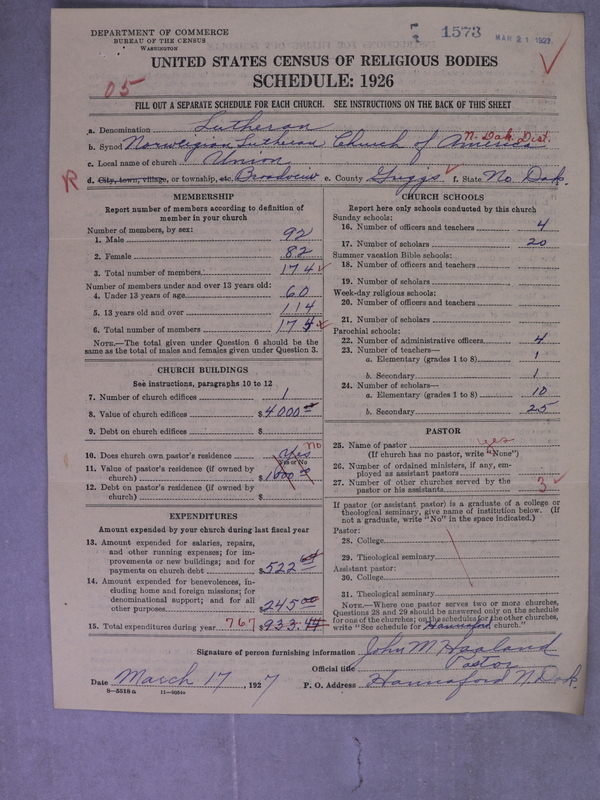 DEPARTMENT OF COMMERCE
BUREAU OF THE CENSUS
WASHINGTON
1573
MAR 21 1927
UNITED STATES CENSUS OF RELIGIOUS BODIES
SCHEDULE: 1926
05
FILL OUT A SEPARATE SCHEDULE FOR EACH CHURCH. SEE INSTRUCTIONS ON THE BACK OF THIS SHEET
a. Denomination Lutheran
b. Synod Norwegian Lutheran Church of America N. Dak. Dist.
c. Local name of church Union
R d. City, town, village, or township, etc. Broadview e. County Griggs f. State No. Dak.
MEMBERSHIP
Report number of members according to definition of
member in your church
Number of members, by sex:
1. Male 92
2. Female 82
3. Total number of members 174
Number of members under and over 13 years old:
4. Under 13 years of age 60
5. 13 years old and over 114
6. Total number of members 174
NOTE.—The total given under Question 6 should be the
same as the total of males and females given under Question 3.
CHURCH BUILDINGS
See instructions, paragraphs 10 to 12
7. Number of church edifices 1
8. Value of church edifices $4000.00
9. Debt on church edifices $
10. Does church own pastor's residence Yes no
Yes or No
11. Value of pastor's residence (if owned by
church) $1000.00
12. Debt on pastor's residence (if owned by
church) $
EXPENDITURES
Amount expended by your church during last fiscal year
13. Amount expended for salaries, repairs,
and other running expenses; for im-
provements or new buildings; and for
payments on church debt $522
14. Amount expended for benevolences, in-
cluding home and foreign missions; for
denominational support; and for all
other purposes $245.00
15. Total expenditures during year 767 $933.44
CHURCH SCHOOLS
Report here only schools conducted by this church
Sunday schools:
16. Number of officers and teachers 4
17. Number of scholars 20
Summer vacation Bible schools:
18. Number of officers and teachers
19. Number of scholars
Week-day religious schools:
20. Number of officers and teachers
21. Number of scholars
Parochial schools:
22. Number of administrative officers 4
23. Number of teachers—
a. Elementary (grades 1 to 8) 1
b. Secondary 1
24. Number of scholars—
a. Elementary (grades 1 to 8) 10
b. Secondary 25
PASTOR
25. Name of pastor yes
(If church has no pastor, write "None")
26. Number of ordained ministers, if any, em-
ployed as assistant pastors
27. Number of other churches served by the
pastor or his assistants 3
If pastor (or assistant pastor) is a graduate of a college or
theological seminary, give name of institution below. (If
not a graduate, write "No" in the space indicated.)
Pastor:
28. College
29. Theological seminary
Assistant pastor:
30. College
31. Theological seminary
NOTE.—Where one pastor serves two or more churches,
Questions 28 and 29 should be answered only on the schedule
for one of the churches; on the schedules for the other churches,
write "See schedule for Hannaford church."
Signature of person furnishing information John M Haaland
Official title Pastor
Date March 17, 1927 P. O. Address Hannaford N. Dak.
8—5218 a